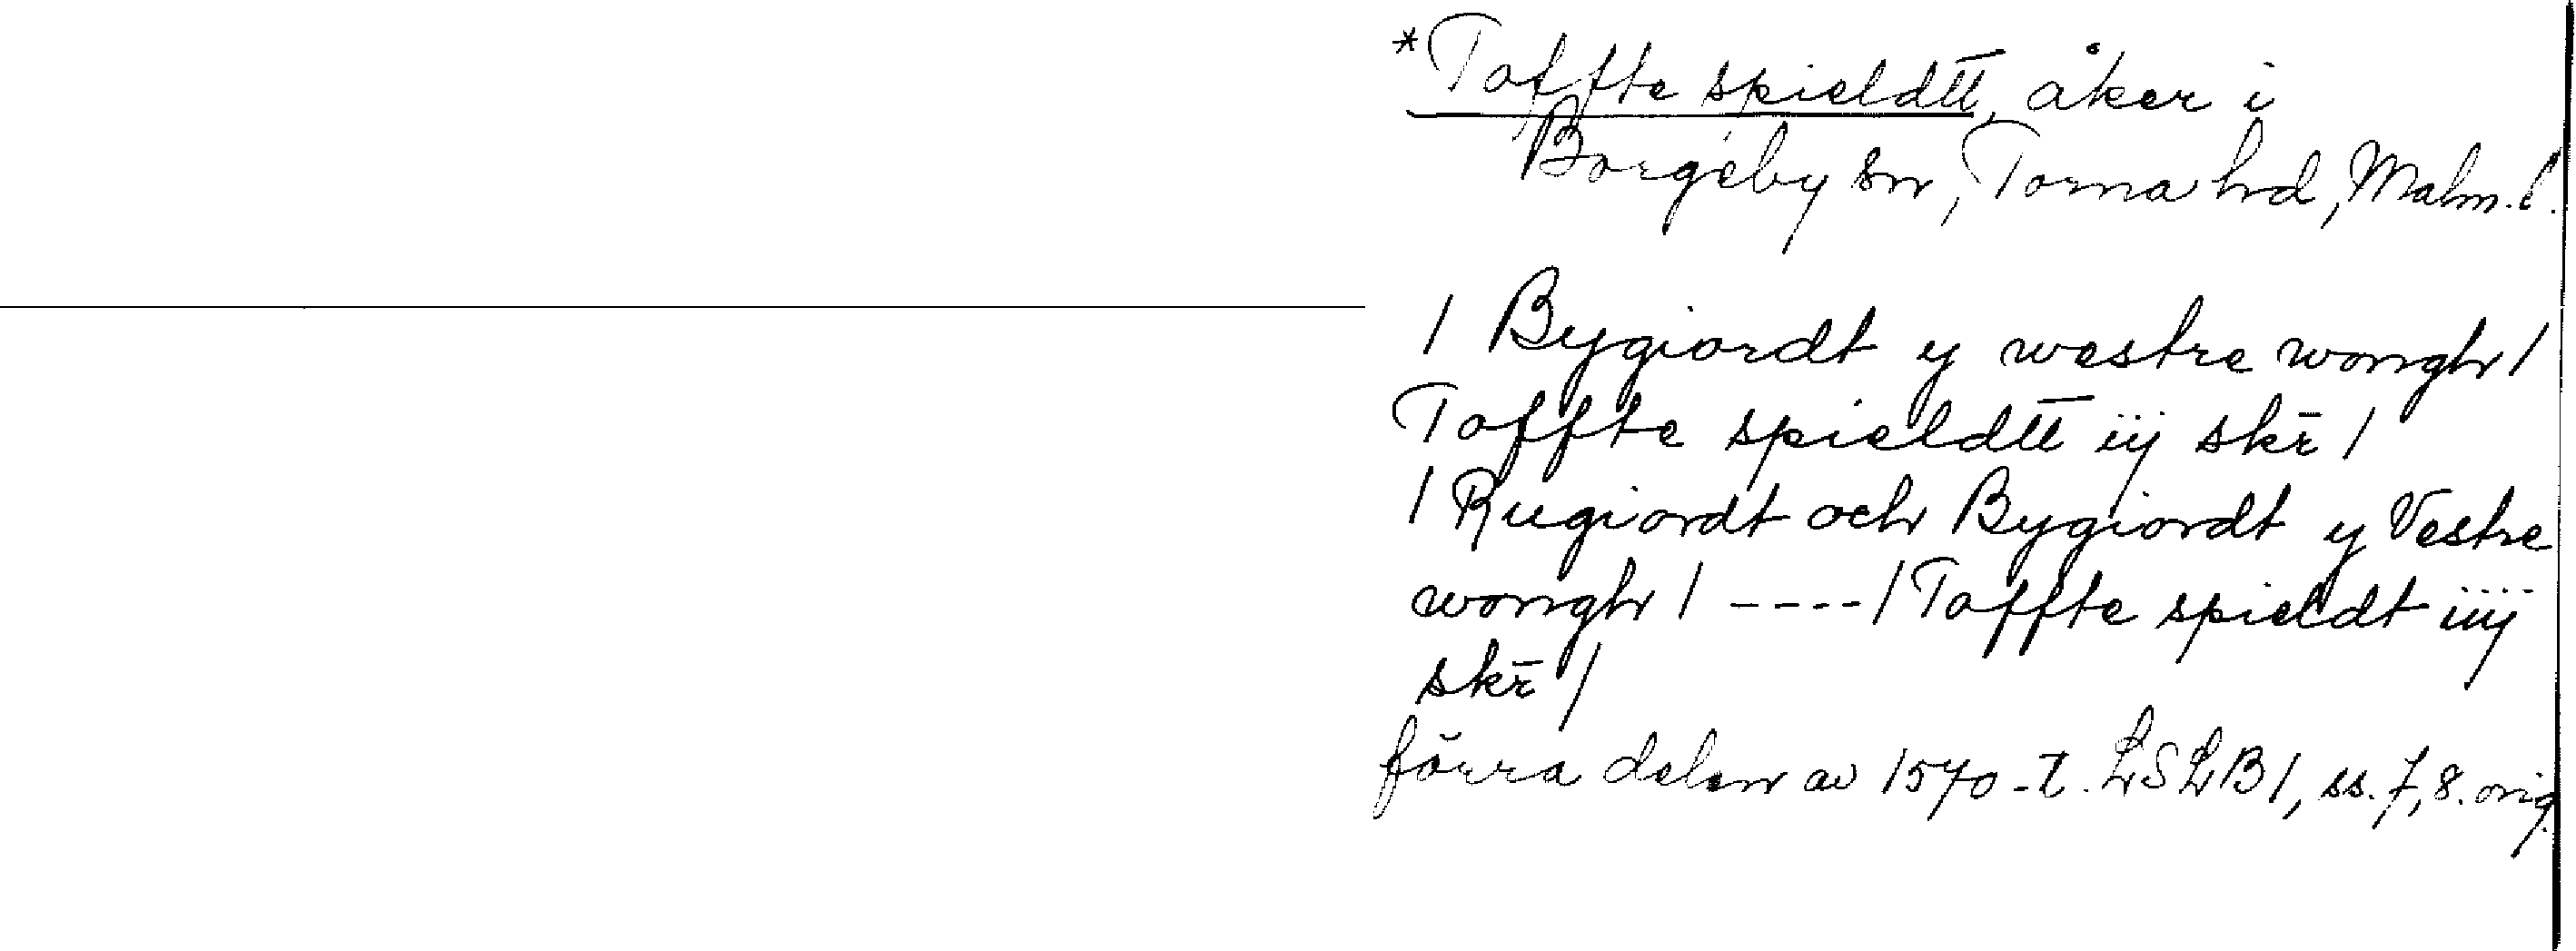 *Toffte spieldtt, åker i
Borgeby sn, Torna hd, Malm. l.
/ Bygiordt y westre wongh /
Toffte spieldtt iij skr̄ /
/ Rugiordt och Bygiordt y Vestre
wongh / ---- / Toffte spieldt iiij
skr̄ /
förra delen av 1570-t. LSLB 1, ss. 7, 8. orig.